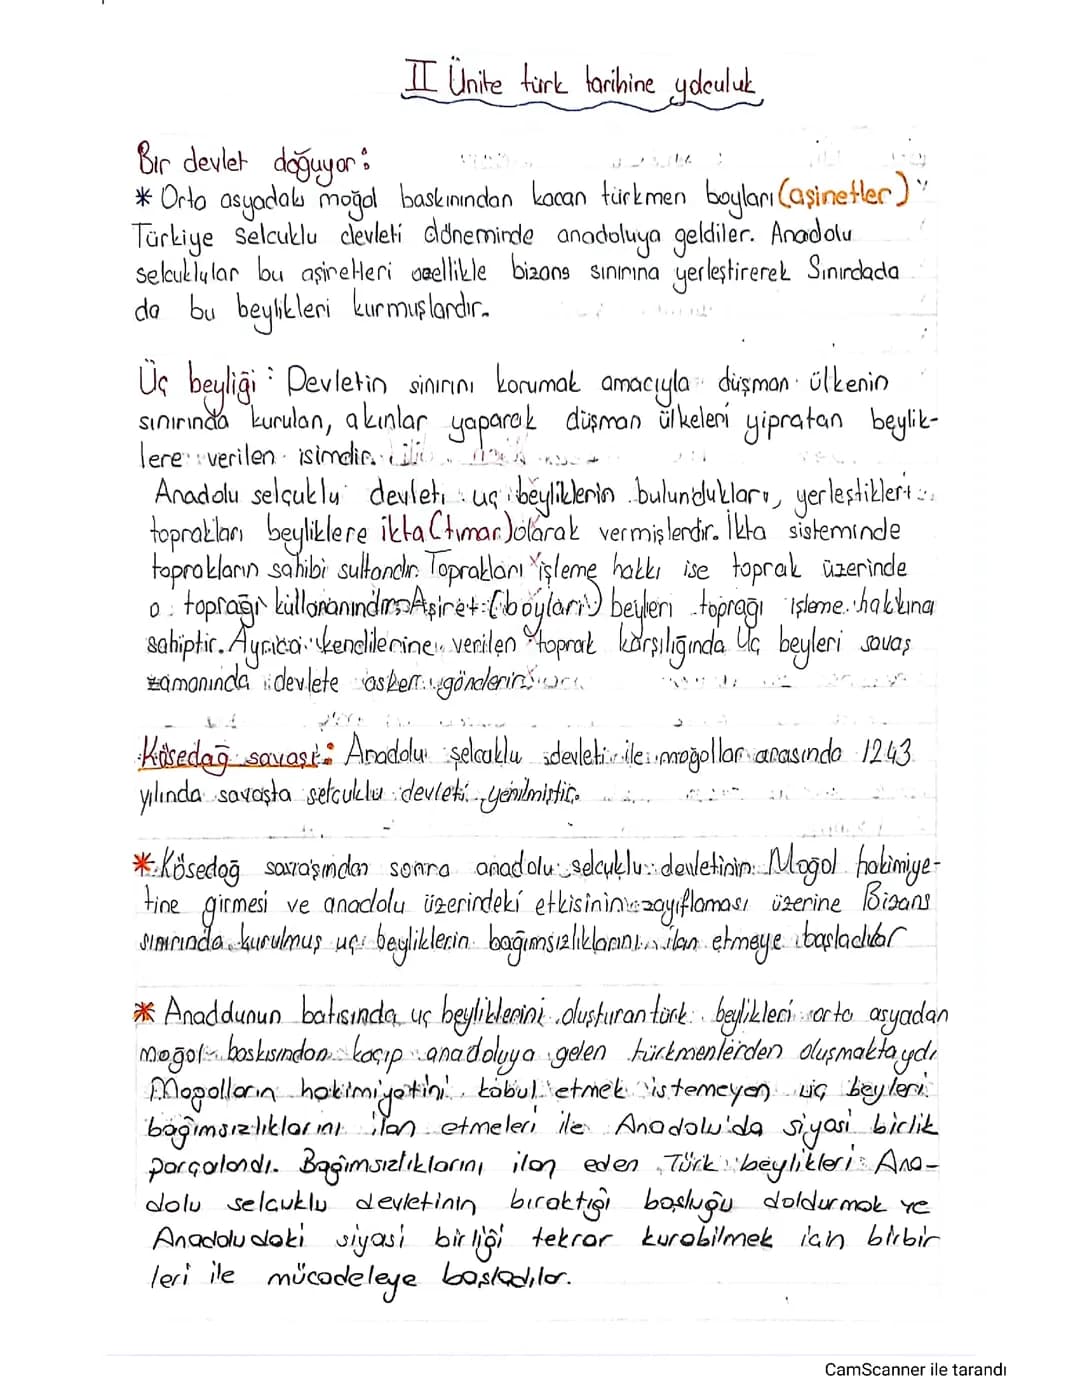 II Ünite türk tarihine yolculuk
Bir devlet doğuyor:
* Orta asyadakı moğol baskınından kacan türkmen boyları (aşiretler)
Türkiye Selcuklu devleti döneminde anadoluya geldiler. Anadolu
selcuklular bu aşiretleri özellikle bizans sınırına yerleştirerek Sınırdada
da bu beylikleri kurmuşlardır.
Üç beyliği : Devletin sinırını korumak amacıyla düşman ülkenin
sınırında kurulan, akınlar yaparak düşman ülkeleri yipratan beylik-
lere verilen isimdir.
Anadolu selçuklu devleti uç beyliklerin bulundukları, yerleştikleri
toprakları beyliklere ikta (tımar) olarak vermişlerdir. İkta sisteminde
toprakların sahibi sultandır. Toprakları işleme hakkı ise toprak üzerinde
o toprağı kullananındır. Aşiret (boyları) beyleri toprağı işleme hakkına
sahiptir. Ayrıca kendilerine verilen toprak karşılığında Uç beyleri savaş
zamanında devlete asker gönderir.
Kösedağ savaşı: Anadolu selcuklu devleti ile moğollar arasında 1243
yılında savaşta selcuklu devleti yenilmiştir.
* Kösedağ savaşından sonra anadolu selcuklu devletinin Moğol hakimiye-
tine girmesi ve anadolu üzerindeki etkisinin zayıflaması üzerine Bizans
sınırında kurulmuş uç beyliklerin bağımsızlıklarını ilan etmeye başladılar
* Anadolunun batısında uç beyliklerini oluşturan türk beylikleri orta asyadan
moğol baskısından kaçıp anadoluya gelen türkmenlerden oluşmaktaydı
Mogolların hakimiyetini kabul etmek istemeyen uç beyleri
bağımsızlıklarını ilan etmeleri ile Anadolu'da siyasi birlik
parçalandı. Bağımsızlıklarını ilan eden Türk beylikleri Ana-
dolu selçuklu devletinin bıraktığı boşluğu doldurmak ve
Anadoludaki siyasi birliği tekrar kurabilmek icin birbir
leri ile mücadeleye başladılar.
CamScanner ile tarandı